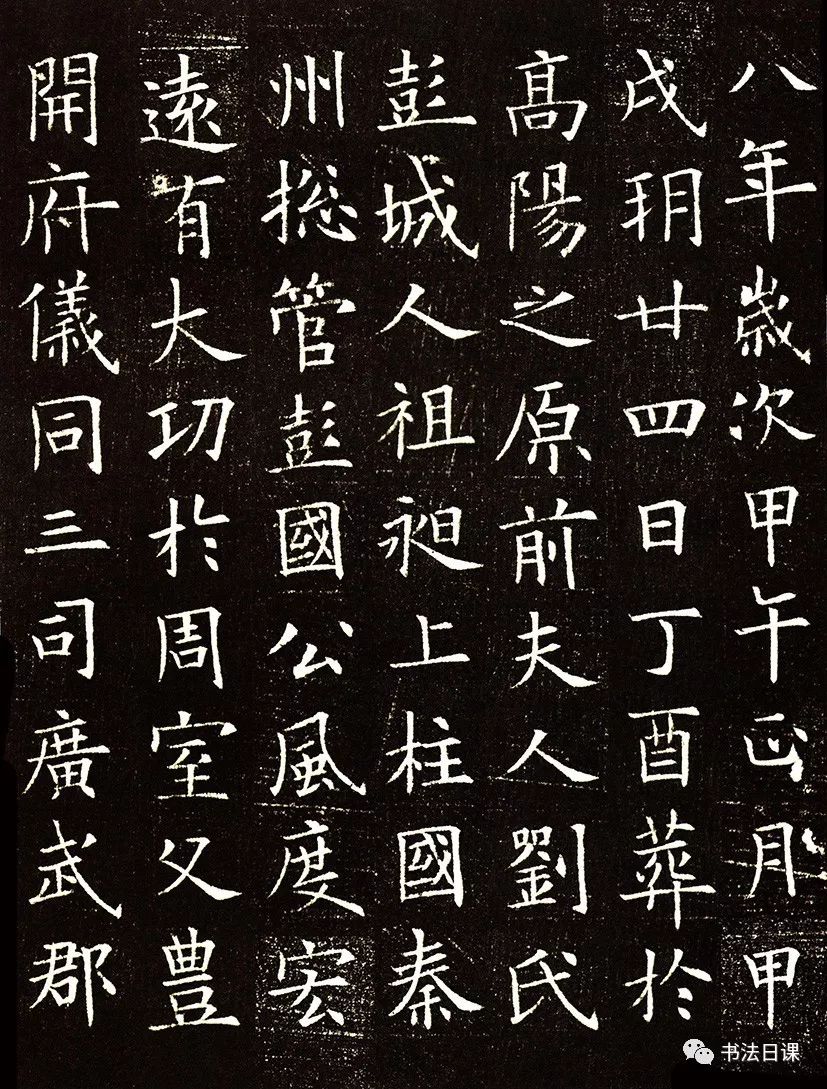 八年歲次甲午正月甲
戌玥廿四日丁酉葬於
高陽之原前夫人劉氏
彭城人祖昶上柱國秦
州捴管彭國公風度宏
遠有大功於周室父豊
開府儀同三司廣武郡
书法日课